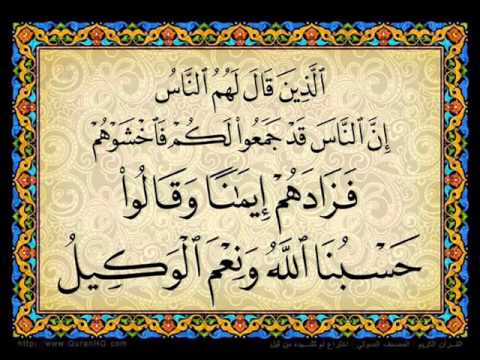 ٱلَّذِينَ قَالَ لَهُمُ ٱلنَّاسُ
إِنَّ ٱلنَّاسَ قَدۡ جَمَعُواْ لَكُمۡ فَٱخۡشَوۡهُمۡ
فَزَادَهُمۡ إِيمَٰنٗا وَقَالُواْ
حَسۡبُنَا ٱللَّهُ وَنِعۡمَ ٱلۡوَكِيلُ
http: www.Quran4D.com القرآن الكريم المصحف الصوتي